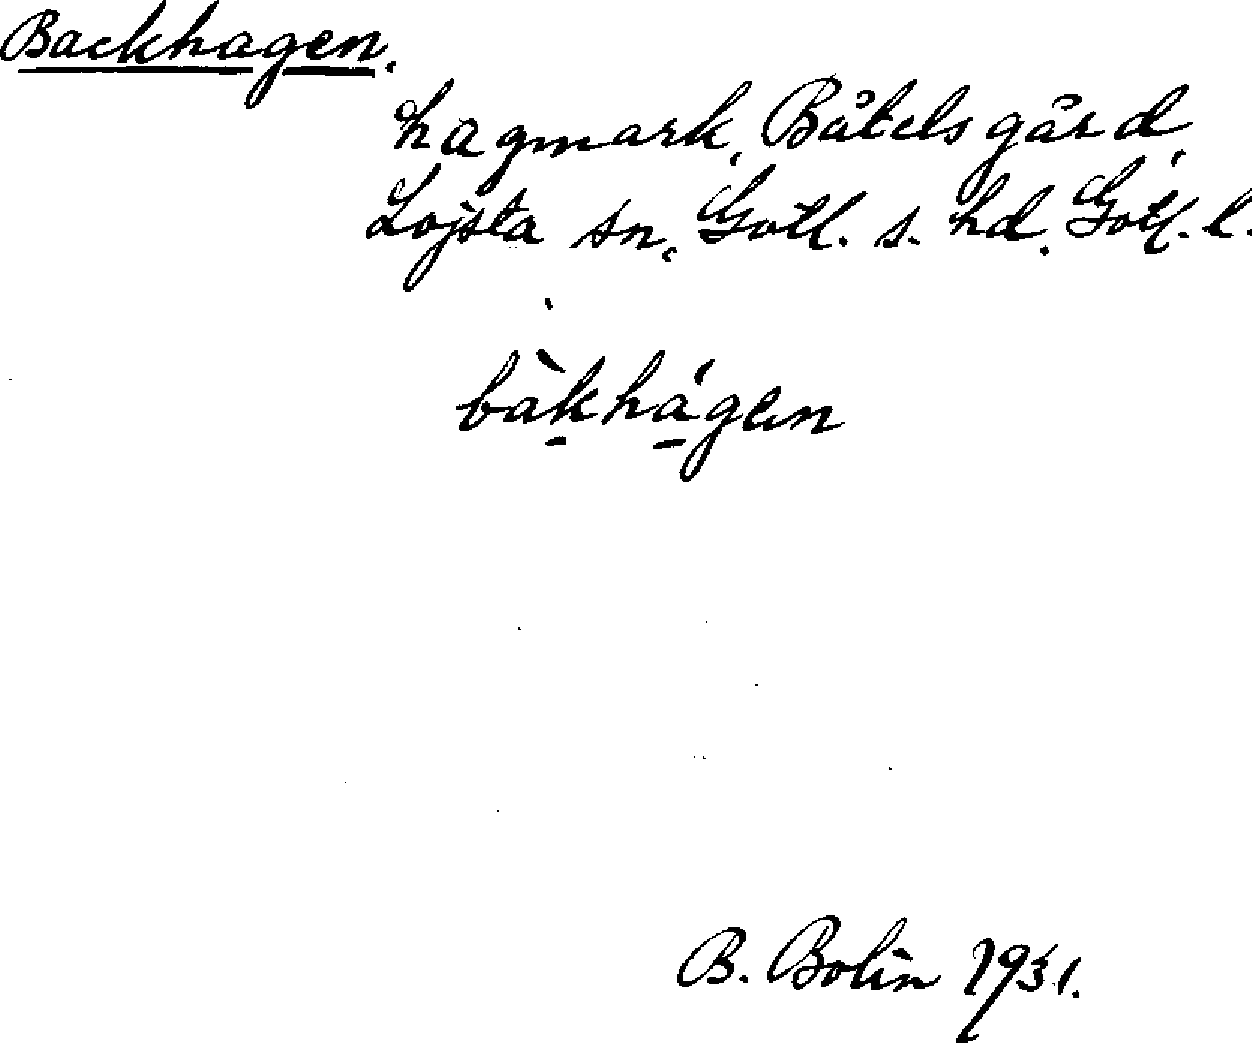 Backhagen.
hagmark, Båtels gård,
Lojsta sn, Gotl. s. hd. Gotl. l.
bàkhágen
B. Bolin 1931.